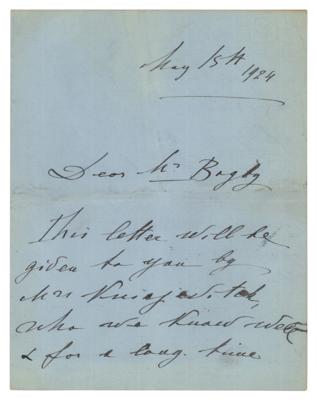 May 15th
1924
Dear Mr Bagby
This letter will be
given to you by
Mrs Kniajevitch,
who we know well
& for a long time